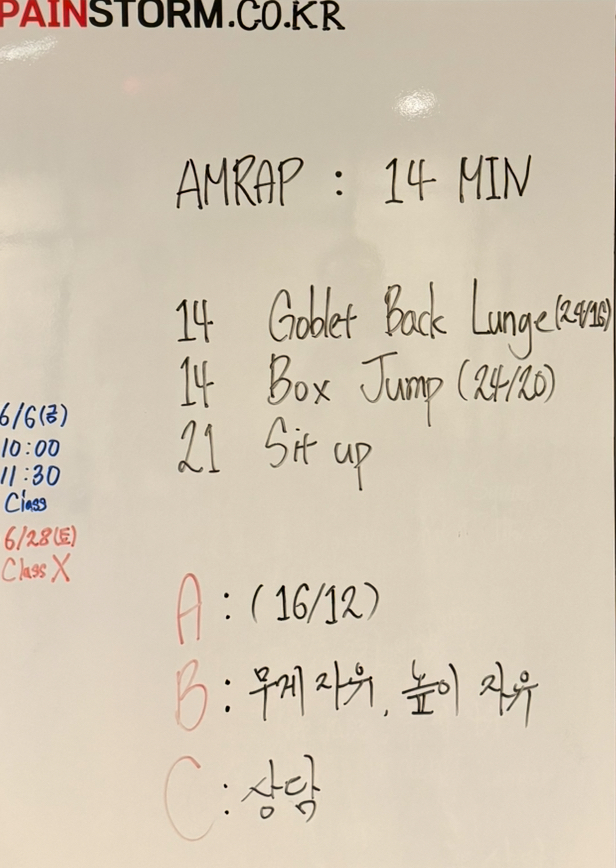 PAINSTORM.CO.KR
AMRAP : 14 MIN
14 Goblet Back Lunge (24/16)
14 Box Jump (24/20)
21 Sit up
6/6(금)
10:00
11:30
Class
6/28(토)
Class X
A : (16/12)
B : 무게 자유, 높이 자유
C : 상담